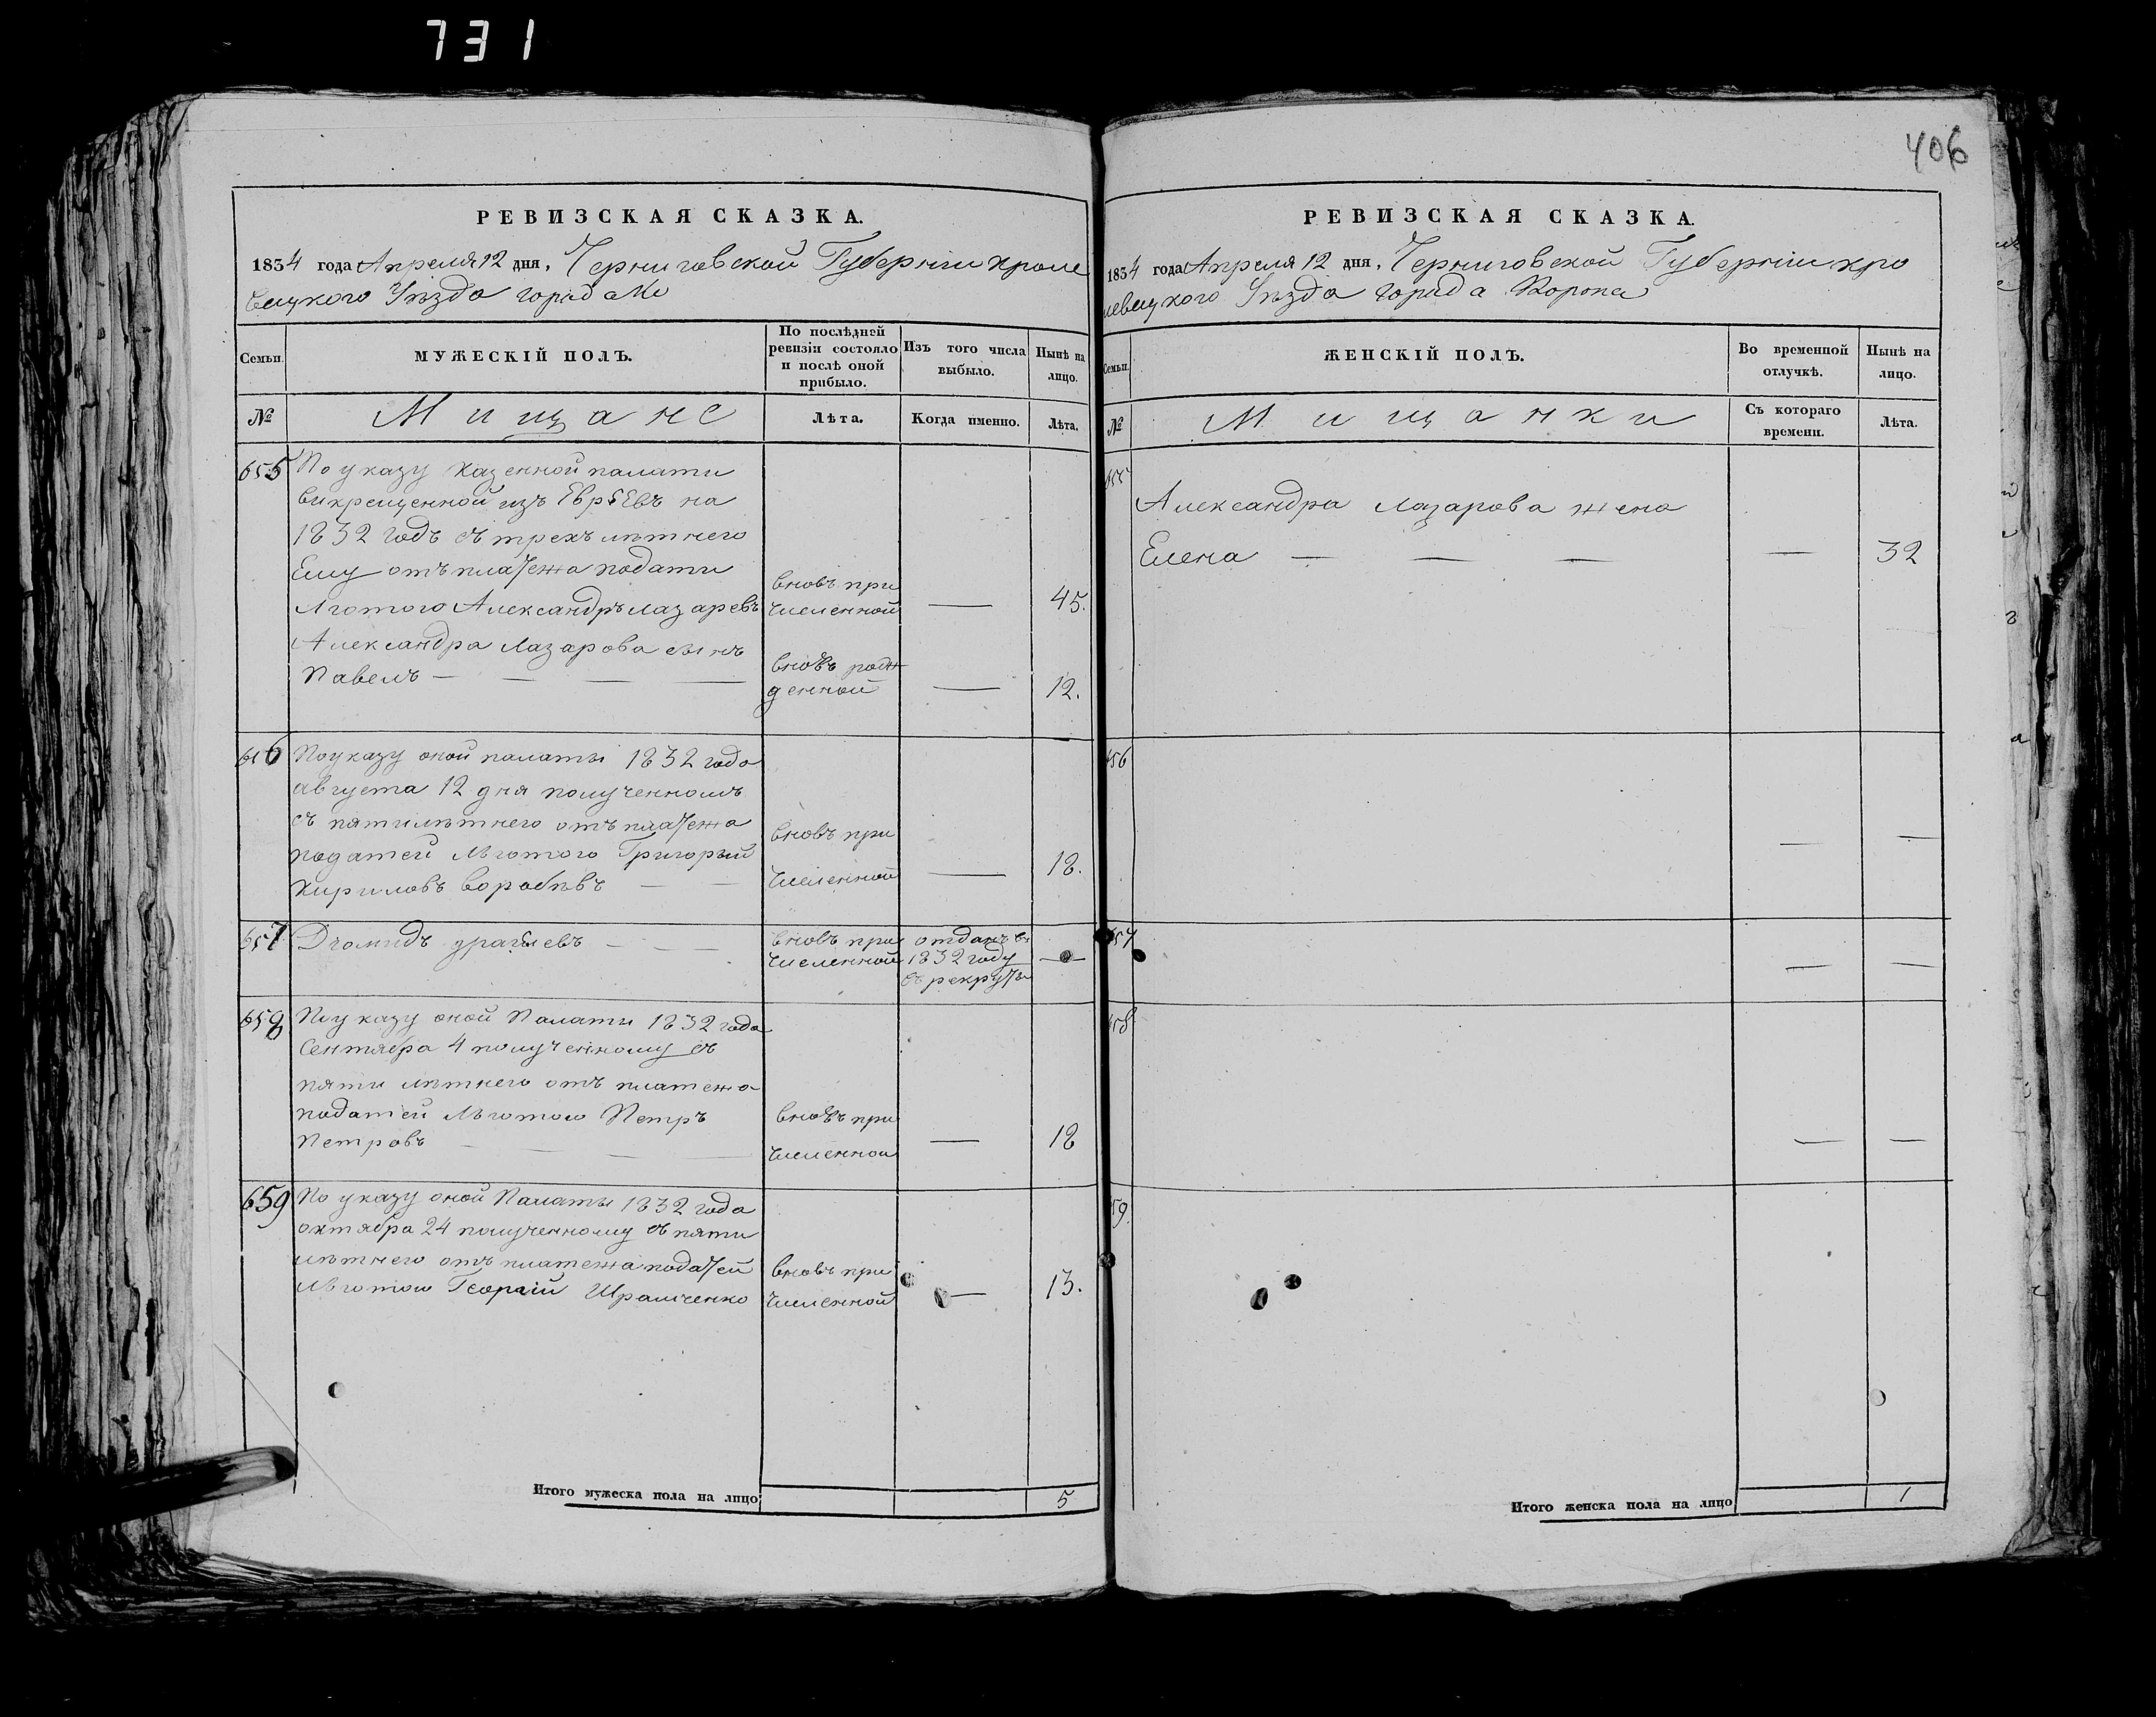 731
406
РЕВИЗСКАЯ СКАЗКА.
1834 года Апреля 12 дня, Черниговской Губернии Кроле
вецкого Уезда города Ко
Семьи.
МУЖЕСКІЙ ПОЛЪ.
По послѣдней ревизіи состояло и послѣ оной прибыло.
Изъ того числа выбыло.
Нынѣ на лицо.
№
Мищане
Лѣта.
Когда именно.
Лѣта.
655
По указу Казенной палати
викрещенной изъ Евреевъ на
1832 годъ съ трехъ лѣтнего
Ему отъ платежа подати
Лготого Александръ Лазаревъ
вновъ при
численной
—
45.
Александра Лазарова сынъ
Павелъ — — — —
вновъ рож
денной
—
12.
656
По указу оной палаты 1832 года
августа 12 дня полученномъ
съ пятилѣтнего отъ платежа
податей Льготого Григорый
Кириловъ Воробѣвъ — —
вновъ при
численной
—
18.
657
Диомидъ — —
вновъ при
численной
отданъ в
1832 году
въ рекруты
—
658
По указу оной Палаты 1832 года
Сентября 4 полученному съ
пяти лѣтнего отъ платежа
податей Льготою Петръ
Петровъ — — — —
вновъ при
численной
—
18
659
По указу оной Палаты 1832 года
октября 24 полученному съ пяти
лѣтнего отъ платежа податей
Льготою Георгий Шрамченко
вновъ при
численной
—
13.
Итого мужеска пола на лицо
5
РЕВИЗСКАЯ СКАЗКА.
1834 года Апреля 12 дня, Черниговской Губернии Кро
левецкого Уезда города Коропа
Семьи.
ЖЕНСКІЙ ПОЛЪ.
Во временной отлучкѣ.
Нынѣ на лицо.
№
Мищанки
Съ котораго времени.
Лѣта.
Александра Лазарова жена
Елена — — —
—
32
656
— —
657
— —
658
— —
59.
Итого женска пола на лицо
1